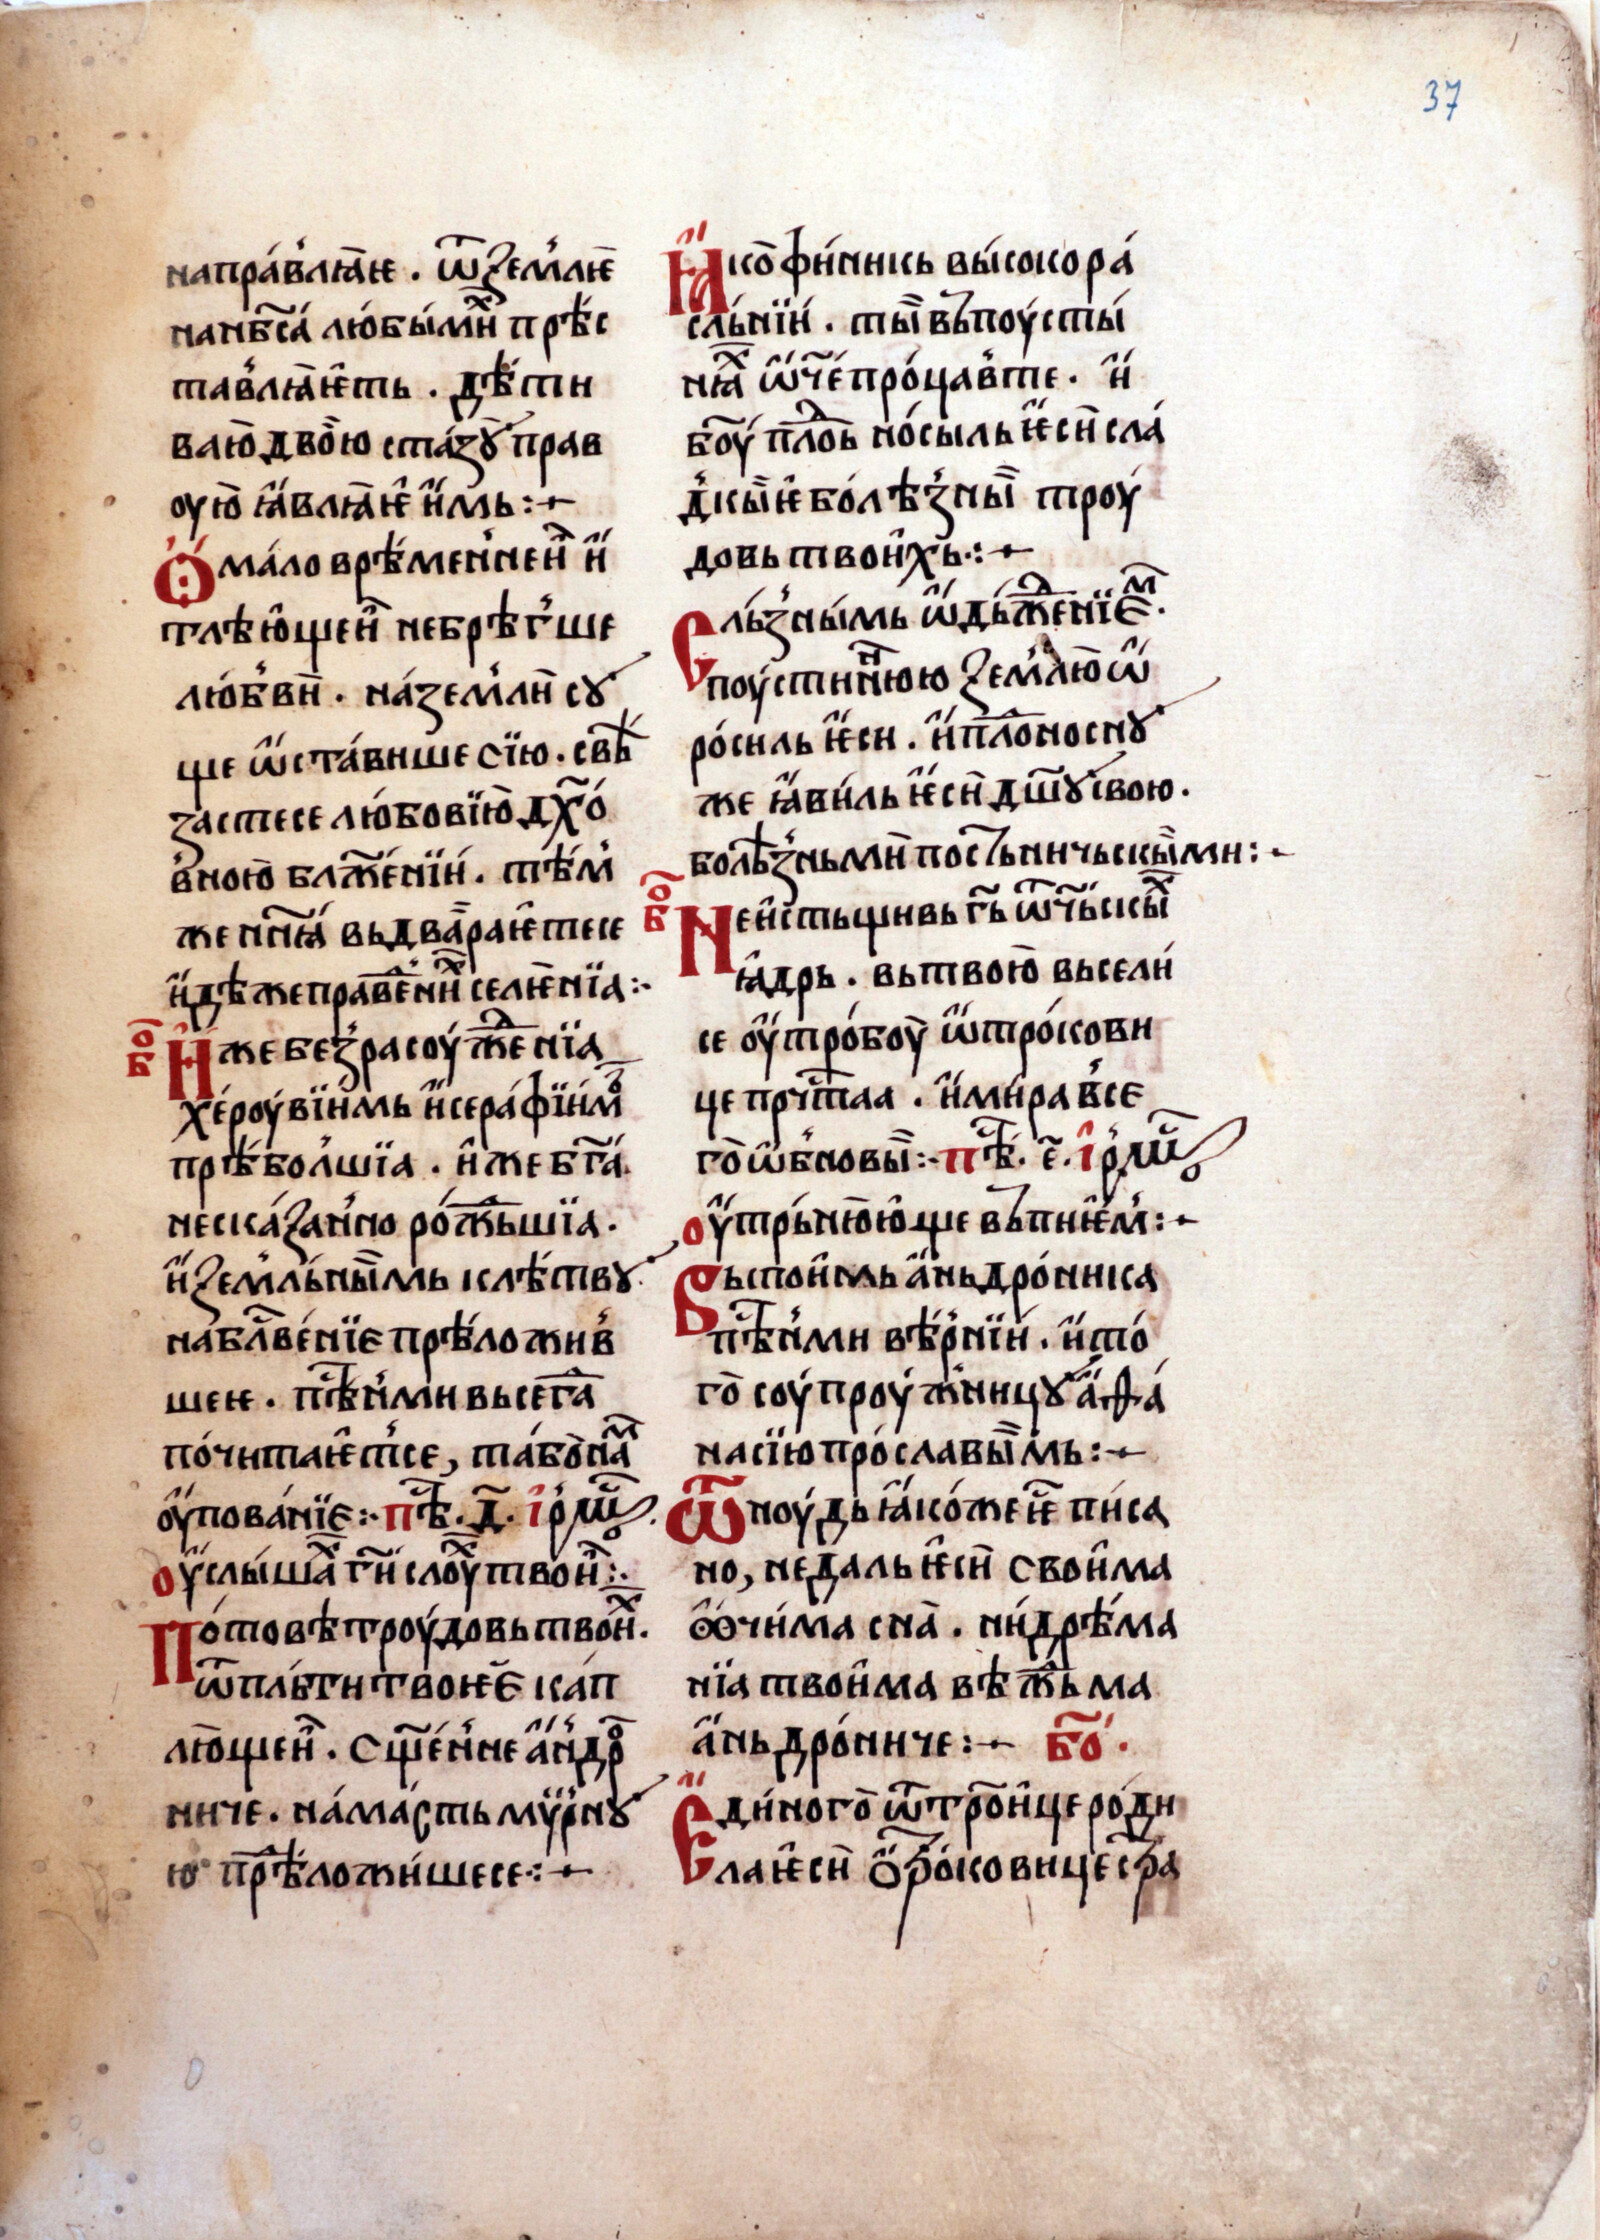 37
напра́влꙗ̀ѥ . ѿ землѥ̀
на нб҃са́ лю́бы́мⷯи прѣ́с
тавлꙗ̀ѥ̑ть . дѣ́тн
ваю̀ дво̀ю ста́зꙋ̀ прав
оую̀ ꙗ҆́влꙗ̀ѥ̑ и҆́мь :~
Ѻ҆́ ма́ло врѣ́мен'неи̑ и҆́
тлѣ́ю̑щеи̑ не брѣ́г'ше
лю́б'вѝ . на́ землѝ сꙋ
ще ѡ҆́ста́више сїю . свѣ́
застесе лю́бовїю̀ дх҃о́
в'ною̀ блаж҃е́нїи́ . тѣ́м'
же нн҃ꙗ́ вьдва̀раѥ̑тесе
и҆́дѣже правⷣе́нⷯи селѥ̀нїа :~
ѻ҃б И҆́же без' расоуⷤде́нїа
хе́роувїи́мь и҆́ сера́фїи́мⷪ
прѣ́бол'шїа . и҆́же бг҃а́
неска́зан'но ро́жⷣьшїа .
и҆́ земльны̀мь клѣ́твꙋ
на блв҃е́нїє прѣ́ложив'
шеѥ . пѣⷭ҇н'ми вьсегⷣа
по́читаѥ̑т'се, та́ бо̀ наⷨ
оу҆́пова́нїє :~ пѣⷭ҇. д҃. і҆́рмѡⷭ҇
оу҆́слы́шаⷯ гⷭ҇и слоуⷯ твои̑ :~
По́товѣ троу́довь твоиⷯ .
ѿ пль́ти твоѥѐ ка́п
лю̀щеи̑ . сщ҃е́н'не а҆́н'дрⷪ
ниче . на́ ма́сть мѵ́рнꙋ
ю прѣ́ложи́шесе :~
Ꙗ҆́ко̀ фи́никь высоко ра́
сль́нїи́ . ты̀ вь поу́сты́
нꙗⷯ ѡ҆́ч҃е́ про́цавте . и҆́
бо҃у́ плⷪдь но́сыль ѥ҆сѝ сла́
д'кы̀ѥ бо́лѣзны̀ троу́
довь твои̑хь :~
Слъ́з'ны́мь ѡ҆́дьжⷣе́нїєⷨ .
поу́стин'ною землю̀ ѡ҆́
ро́силь ѥ҆си . и҆́ плⷪдоноснꙋ
же ꙗ҆́ви́ль ѥ҆сѝ дш҃ꙋ свою .
болѣз'ньмѝ постьничьскы̀ми :~
ѻ҃б Не и҆стьщивь гⷭ҇ь ѿч҃ьскыⷯ
ꙗ҆́дрь . вь твою̀ вьсели́
се оу҆́тро́боу̀ ѡ҆́тро́кови
це прчⷭ҇таа . и҆́ ми́ра в'се
го̀ ѡ҆б'новы̀ :~ пѣⷭ҇. е҃. і҆́рмѡⷭ҇
оу҆́тры́ню̀ю̑ще вьпиѥ̑м' :~
Вьспои̑мь а҆́ньдро́ника
пѣⷭ҇н'ми вѣ́р'нїи́ . и҆́ то́
го̀ соупроу́ж'ницꙋ а҆́ѳа́
насїю про́славы̀мь :~
Ѿноу́дь ꙗ҆́ко́же ѥⷭ҇ пи́са
но, не даль ѥ҆сѝ свои̑ма
ѻ҆́чи́ма сна̀ . ни́ дрѣ́ма
нїа твои̑ма вѣждьма
а҆́ньдро́ниче :~ бⷪ҇.
Е҆́ди́ного̀ ѿ трⷪ҇и̑це ро́ди
ла ѥ҆сѝ ѻ҆́тро́ковице стра